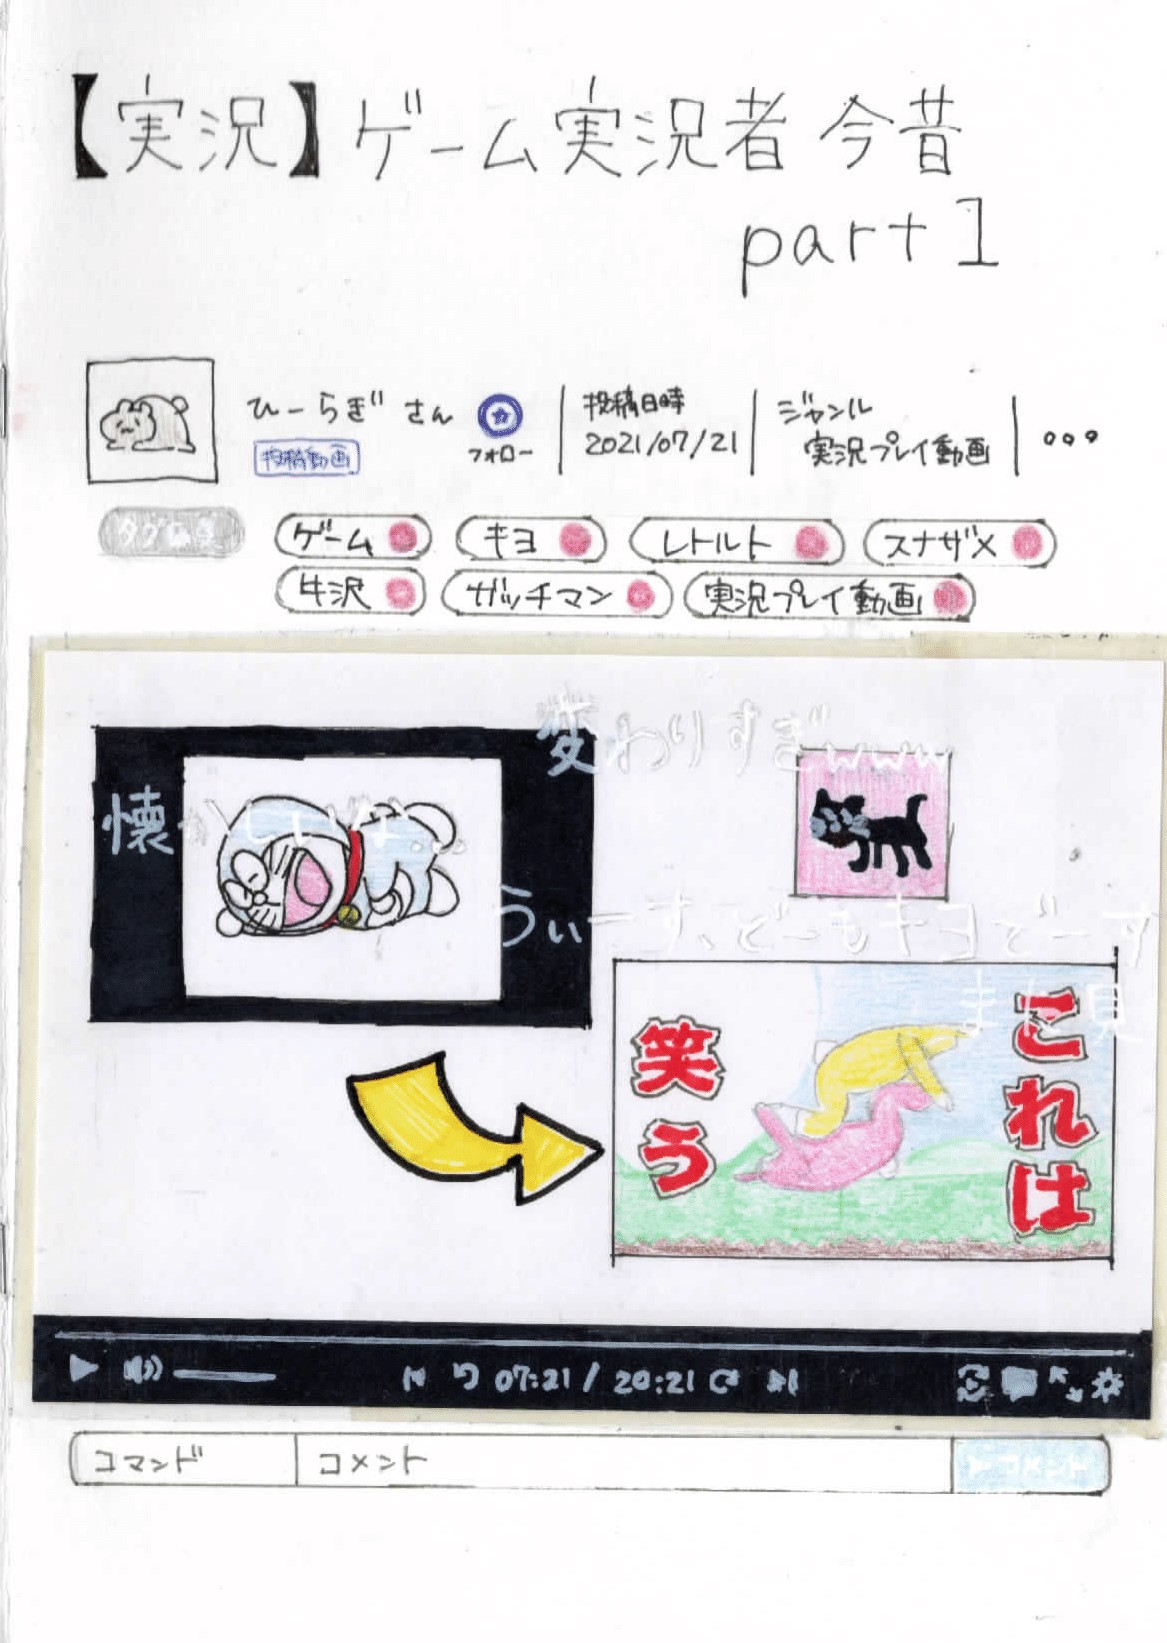 【実況】ゲーム実況者 今昔
part1
ひーらぎ さん
投稿動画
フォロー
投稿日時
2021/07/21
ジャンル
実況プレイ動画
ゲーム
キヨ
レトルト
スナザメ
牛沢
ガッチマン
実況プレイ動画
変わりすぎwww
懐かしいな…
うぃーす、どーもキヨでーす
これは
笑う
07:21 / 20:21
コマンド
コメント
コメント